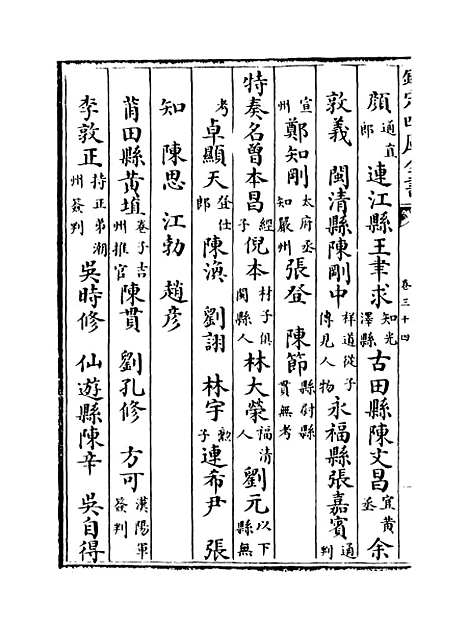 欽定四庫全書 卷三十四
顔通直郎 連江縣王聿求知光澤縣 古田縣陳文昌宜黄丞 余
敦義 閩清縣陳剛中祥道從子傳見人物 永福縣張嘉賓通判
宣州 鄭知剛太府丞知嚴州 張登 陳節縣尉縣貫無考
特奏名曾本昌經子 倪本材子俱閩縣人 林大榮福清人 劉元以下縣無
考 卓顯天登仕郎 陳渙 劉詡 林宇勲子 連希尹 張
知 陳思 江勃 趙彦
莆田縣黄埴卷子吉州推官 陳貫 劉孔修 方可漢陽軍簽判
李敦正持正弟潮州簽判 吳時修 仙遊縣陳辛 吳自得